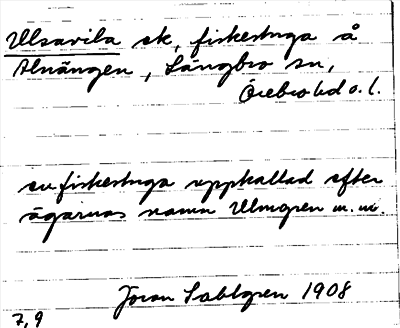 Ulsavila sk, fiskestuga å
Alnängen, Längbro sn,
Örebro hd o. l.
en fiskestuga uppkallad efter
ägarnas namn Ulmgren m. m.
Jöran Sahlgren 1908
7,9